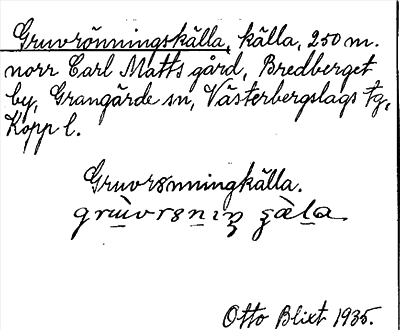 Gruvrönningskälla, källa, 250 m.
norr Carl Matts gård, Bredberget
by, Grangärde sn, Västerbergslags tg,
Kopp l.
Gruvrönningkälla.
Otto Blixt 1935.